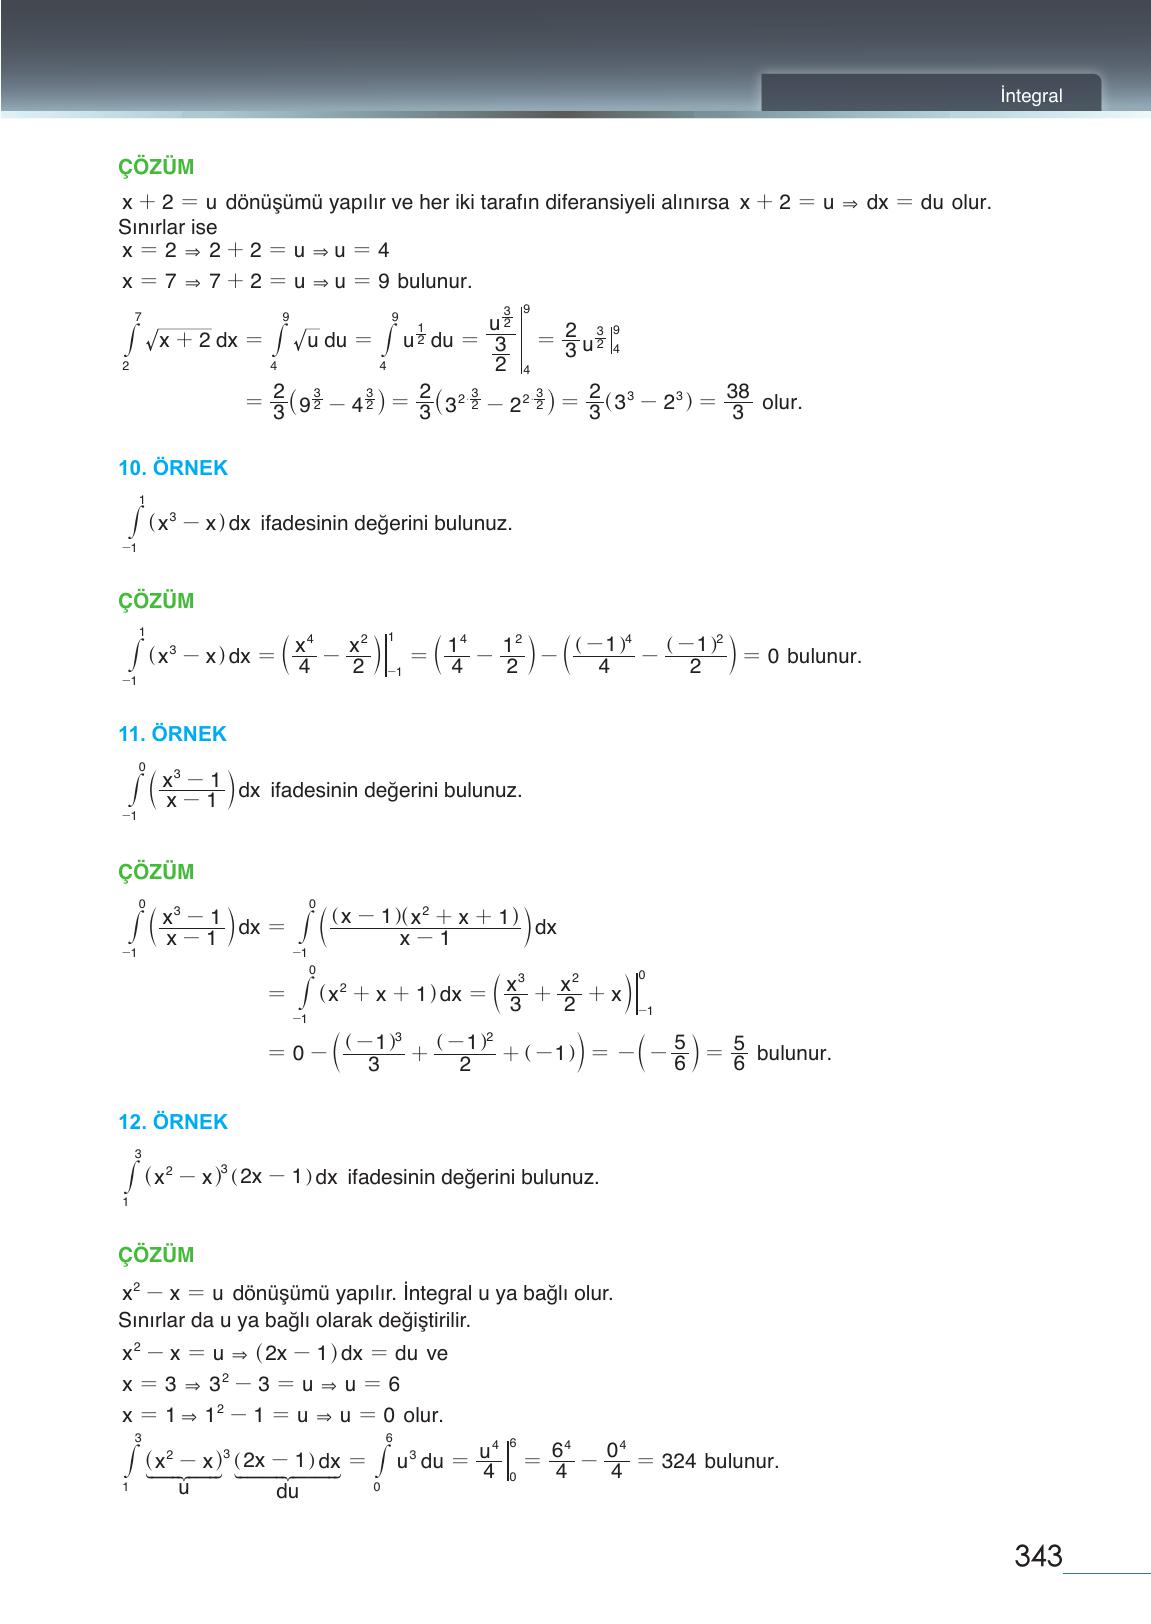 İntegral
ÇÖZÜM
x + 2 = u dönüşümü yapılır ve her iki tarafın diferansiyeli alınırsa x + 2 = u ⇒ dx = du olur.
Sınırlar ise
x = 2 ⇒ 2 + 2 = u ⇒ u = 4
x = 7 ⇒ 7 + 2 = u ⇒ u = 9 bulunur.
∫₂⁷ √(x + 2) dx = ∫₄⁹ √u du = ∫₄⁹ u^(1/2) du = u^(3/2)/(3/2) |₄⁹ = 2/3 u^(3/2) |₄⁹
= 2/3 (9^(3/2) − 4^(3/2)) = 2/3 (3^(2 3/2) − 2^(2 3/2)) = 2/3 (3³ − 2³) = 38/3 olur.
10. ÖRNEK
∫₋₁¹ (x³ − x) dx ifadesinin değerini bulunuz.
ÇÖZÜM
∫₋₁¹ (x³ − x) dx = (x⁴/4 − x²/2) |₋₁¹ = (1⁴/4 − 1²/2) − ((−1)⁴/4 − (−1)²/2) = 0 bulunur.
11. ÖRNEK
∫₋₁⁰ ((x³ − 1)/(x − 1)) dx ifadesinin değerini bulunuz.
ÇÖZÜM
∫₋₁⁰ ((x³ − 1)/(x − 1)) dx = ∫₋₁⁰ ((x − 1)(x² + x + 1)/(x − 1)) dx
= ∫₋₁⁰ (x² + x + 1) dx = (x³/3 + x²/2 + x) |₋₁⁰
= 0 − ((−1)³/3 + (−1)²/2 + (−1)) = −(−5/6) = 5/6 bulunur.
12. ÖRNEK
∫₁³ (x² − x)³ (2x − 1) dx ifadesinin değerini bulunuz.
ÇÖZÜM
x² − x = u dönüşümü yapılır. İntegral u ya bağlı olur.
Sınırlar da u ya bağlı olarak değiştirilir.
x² − x = u ⇒ (2x − 1) dx = du ve
x = 3 ⇒ 3² − 3 = u ⇒ u = 6
x = 1 ⇒ 1² − 1 = u ⇒ u = 0 olur.
∫₁³ (x² − x)³ (2x − 1) dx = ∫₀⁶ u³ du = u⁴/4 |₀⁶ = 6⁴/4 − 0⁴/4 = 324 bulunur.
u du
343